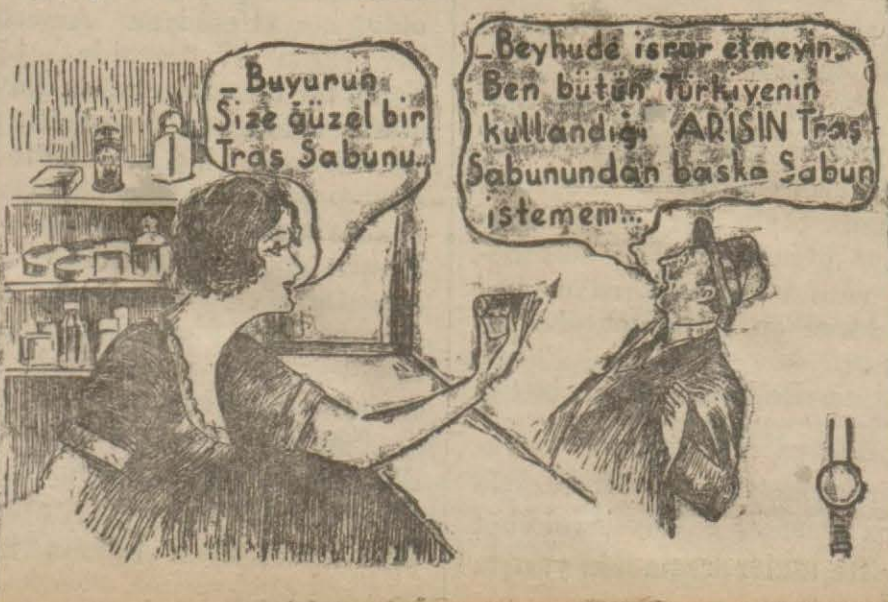 _ Buyurun
Size ğüzel bir
Traş Sabunu..
_Beyhude israr etmeyin.
Ben bütün Türkiyenin
kullandığı ARİSİN Traş
Sabunundan başka Sabun
istemem...